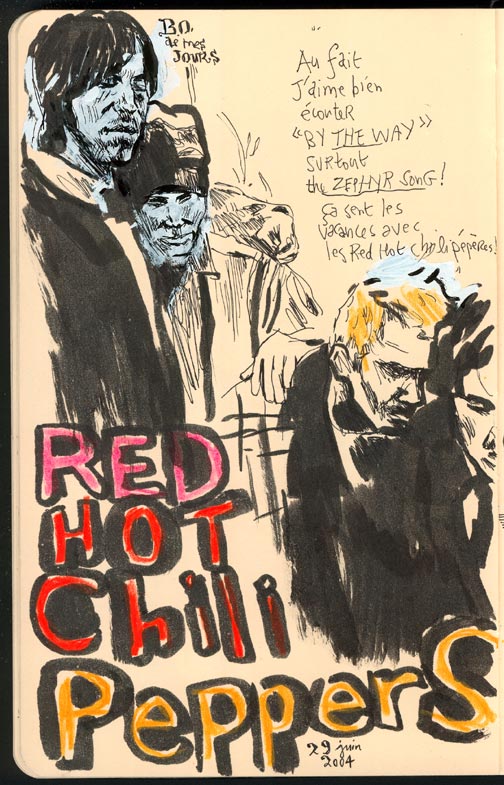 B.O.
de mes
JOURS
Au fait
J'aime bien
écouter
"BY THE WAY"
surtout
the ZEPHYR SONG!
ça sent les
vacances avec
les Red Hot chili pépères!
RED
HOT
Chili
PepperS
29 juin
2004